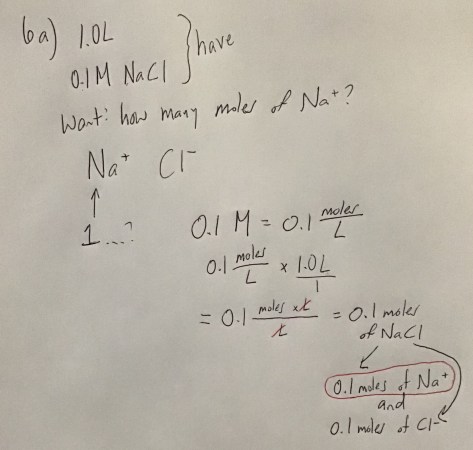 6a) 1.0L
0.1M NaCl } have
Want: how many moles of Na⁺?
Na⁺ Cl⁻
↑
1...?
0.1 M = 0.1 moles/L
0.1 moles/L × 1.0L/1
= 0.1 moles × L/L = 0.1 moles
of NaCl
0.1 moles of Na⁺
and
0.1 moles of Cl⁻